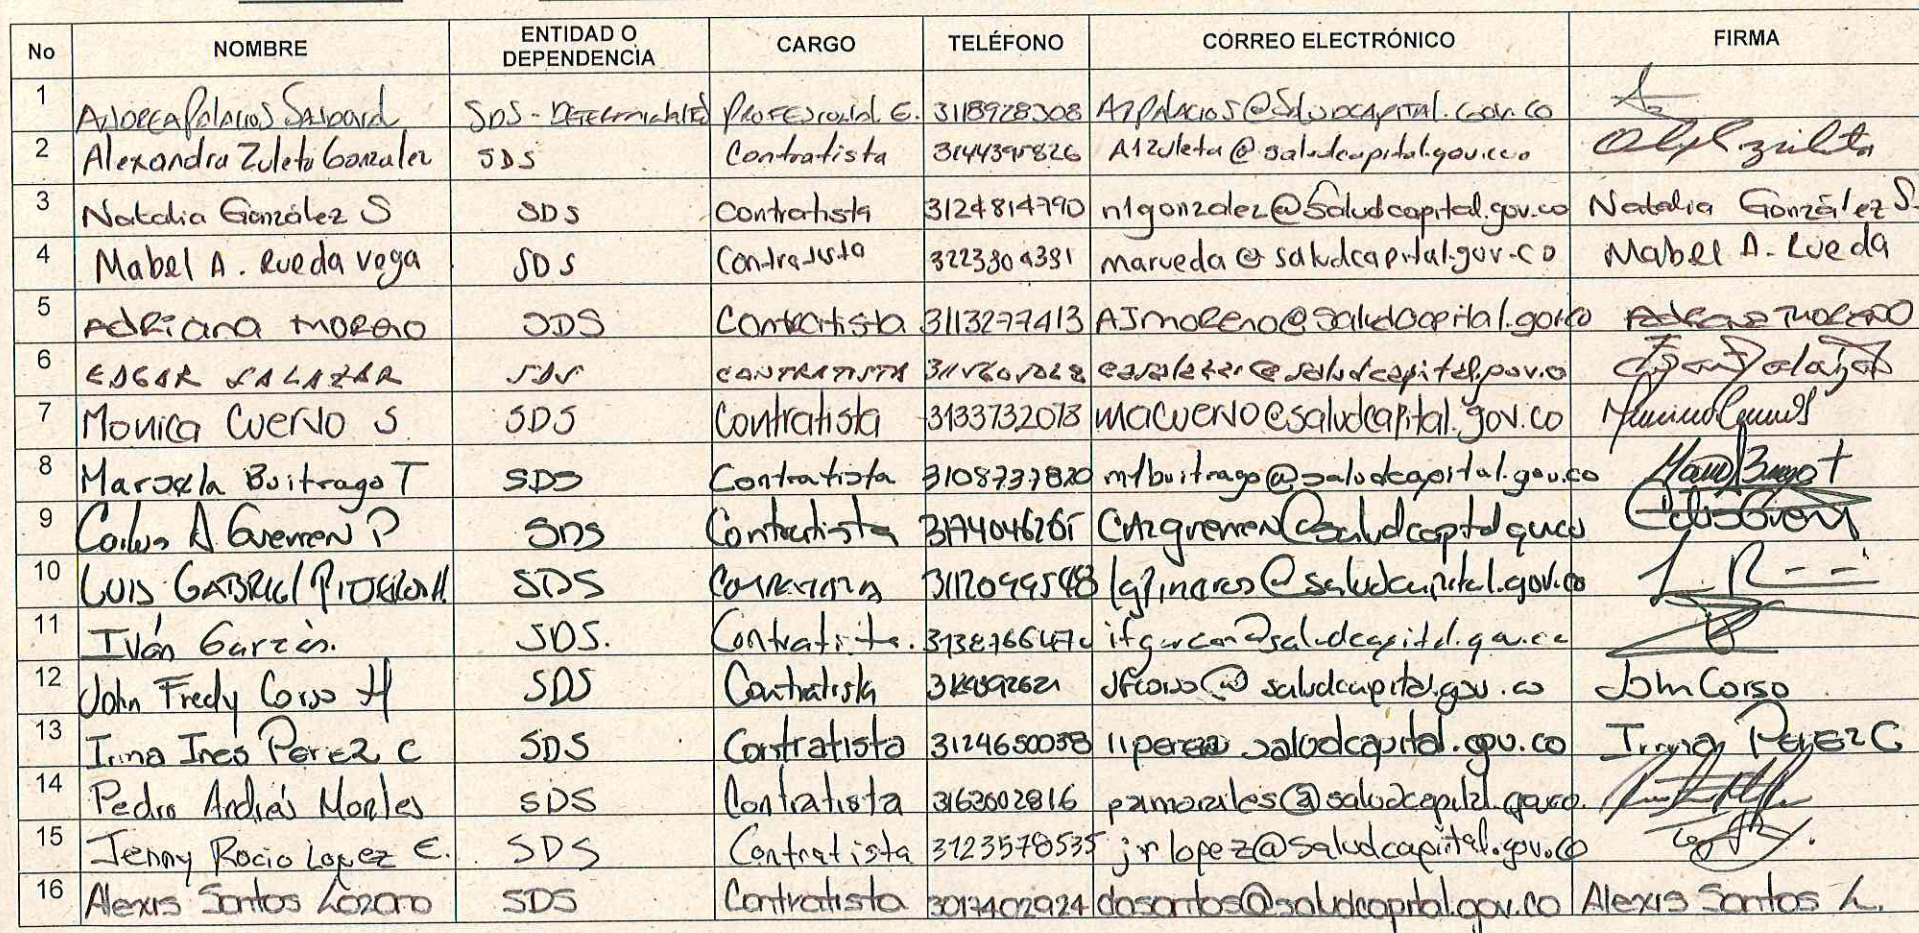 No NOMBRE ENTIDAD O DEPENDENCIA CARGO TELÉFONO CORREO ELECTRÓNICO FIRMA
1 Palacios SDS - Profesional E. 3118928308
2 Alexandra Zuleta Gonzalez SDS Contratista A1zuleta@saludcapital.gov.co
3 Natalia González S SDS Contratista 3124814790 n1gonzalez@saludcapital.gov.co Natalia González S.
4 Mabel A. Rueda Vega SDS Contratista 3223304331 marueda@saludcapital.gov.co Mabel A. Rueda
5 Adriana Moreno SDS Contratista 3113277413 AJmoreno@saludcapital.gov.co Adriana Moreno
6 EDGAR SALAZAR SDS CONTRATISTA
7 Monica Cuervo S SDS Contratista 3133732073 macuervo@saludcapital.gov.co
8 Marcela Buitrago T SDS Contratista 3108737820 mtbuitrago@saludcapital.gov.co
9 Carlos A Guerrero P SDS Contratista 3174046265
10 LUIS GABRIEL SDS Contratista 3112099548 lgpinares@saludcapital.gov.co
11 Iván Garzón. SDS. Contratista.
12 John Fredy Corso H SDS Contratista Jfcorso@saludcapital.gov.co John Corso
13 Irina Ines Perez C SDS Contratista 3124650038 saludcapital.gov.co Irina PEREZ C
14 Pedro Andrés Morales SDS Contratista 3162602816 pamorales@saludcapital.gov.co.
15 Jenny Rocio Lopez E. SDS Contratista 3123578535 jrlopez@saludcapital.gov.co
16 Alexis Santos Lozano SDS Contratista 3017402924 dasantos@saludcapital.gov.co Alexis Santos L.